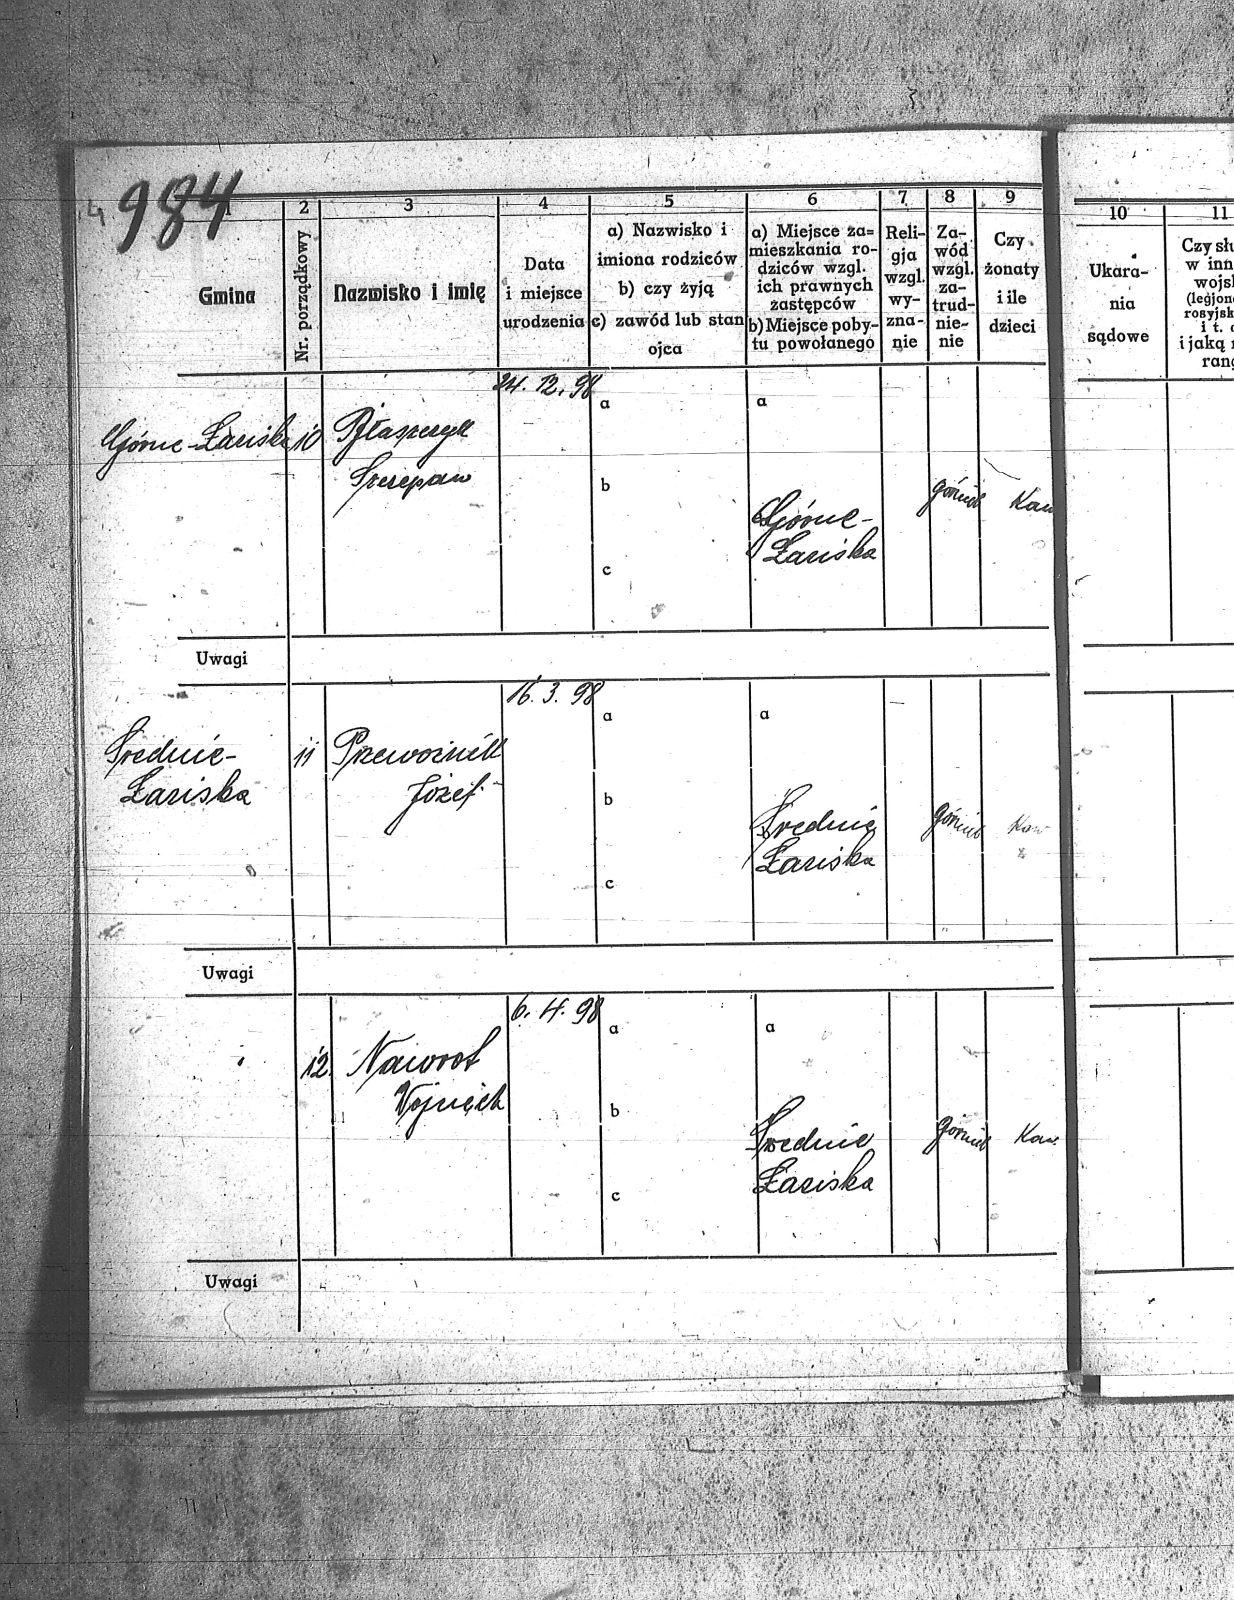 984
1 2 3 4 5 6 7 8 9
Gmina
Nr. porządkowy
Nazwisko i imię
Data
i miejsce
urodzenia
a) Nazwisko i
imiona rodziców
b) czy żyją
c) zawód lub stan
ojca
a) Miejsce za=
mieszkania ro-
dziców wzgl.
ich prawnych
zastępców
b) Miejsce poby-
tu powołanego
Reli-
gja
wzgl.
wy-
zna-
nie
Za-
wód
wzgl.
za-
trud-
nie-
nie
Czy
żonaty
i ile
dzieci
10 11
Ukara-
nia
sądowe
Czy słu
w inn
wojsk
(legjono
rosyjsk
i t. d
i jaką r
rang
24. 12. 98
a a
Górne-Łaziska 10
Szczepan
b
Górne-
Łaziska
górnik Kaw
c
Uwagi
16. 3. 98
a a
Średnie-
Łaziska
11 Przewoźnik
Józef
b
Średnie
Łaziska
górnik Kaw
c
Uwagi
6. 4. 98
a a
12. Nawrot
Wojciech
b
Średnie
Łaziska
górnik Kaw.
c
Uwagi